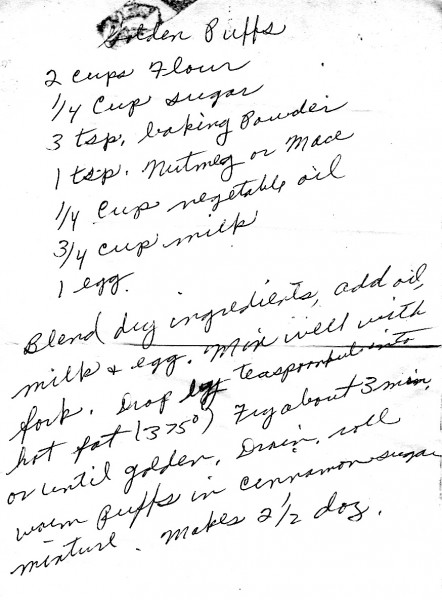 Golden Puffs
2 cups Flour
1/4 Cup sugar
3 tsp. baking Powder
1 tsp. Nutmeg or Mace
1/4 Cup vegetable oil
3/4 cup milk
1 egg.
Blend dry ingredients, add oil,
milk + egg. Mix well with
fork. Drop by teaspoonful into
hot fat (375°) Fry about 3 min,
or until golden. Drain, roll
warm Puffs in cinnamon sugar
mixture. Makes 2 1/2 doz.